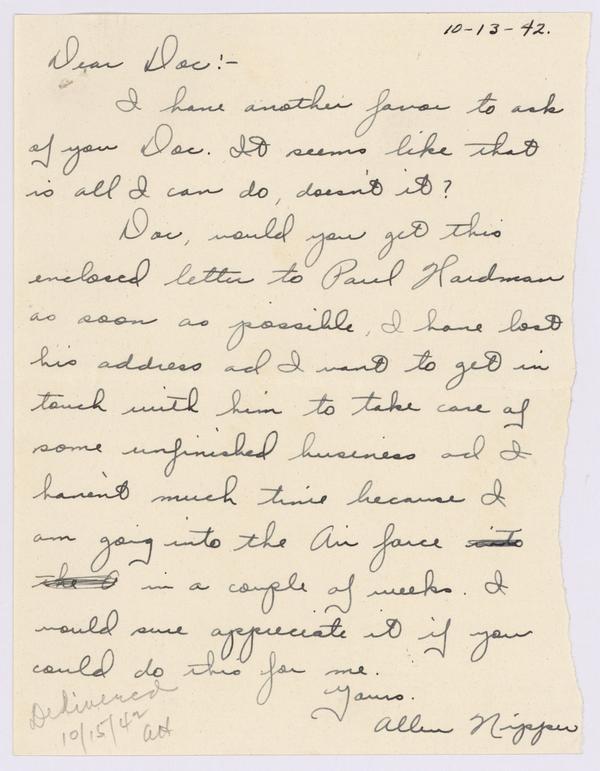 10-13-42.
Dear Doc:-
I have another favor to ask
of you Doc. It seems like that
is all I can do, doesn't it?
Doc, would you get this
enclosed letter to Paul Hardman
as soon as possible, I have lost
his address ad I want to get in
touch with him to take care of
some unfinished business ad I
haven't much time because I
am going into the Air force into
the in a couple of weeks. I
would sure appreciate it if you
could do this for me.
Yours.
Allen Nipper
Delivered
10/15/42
AH